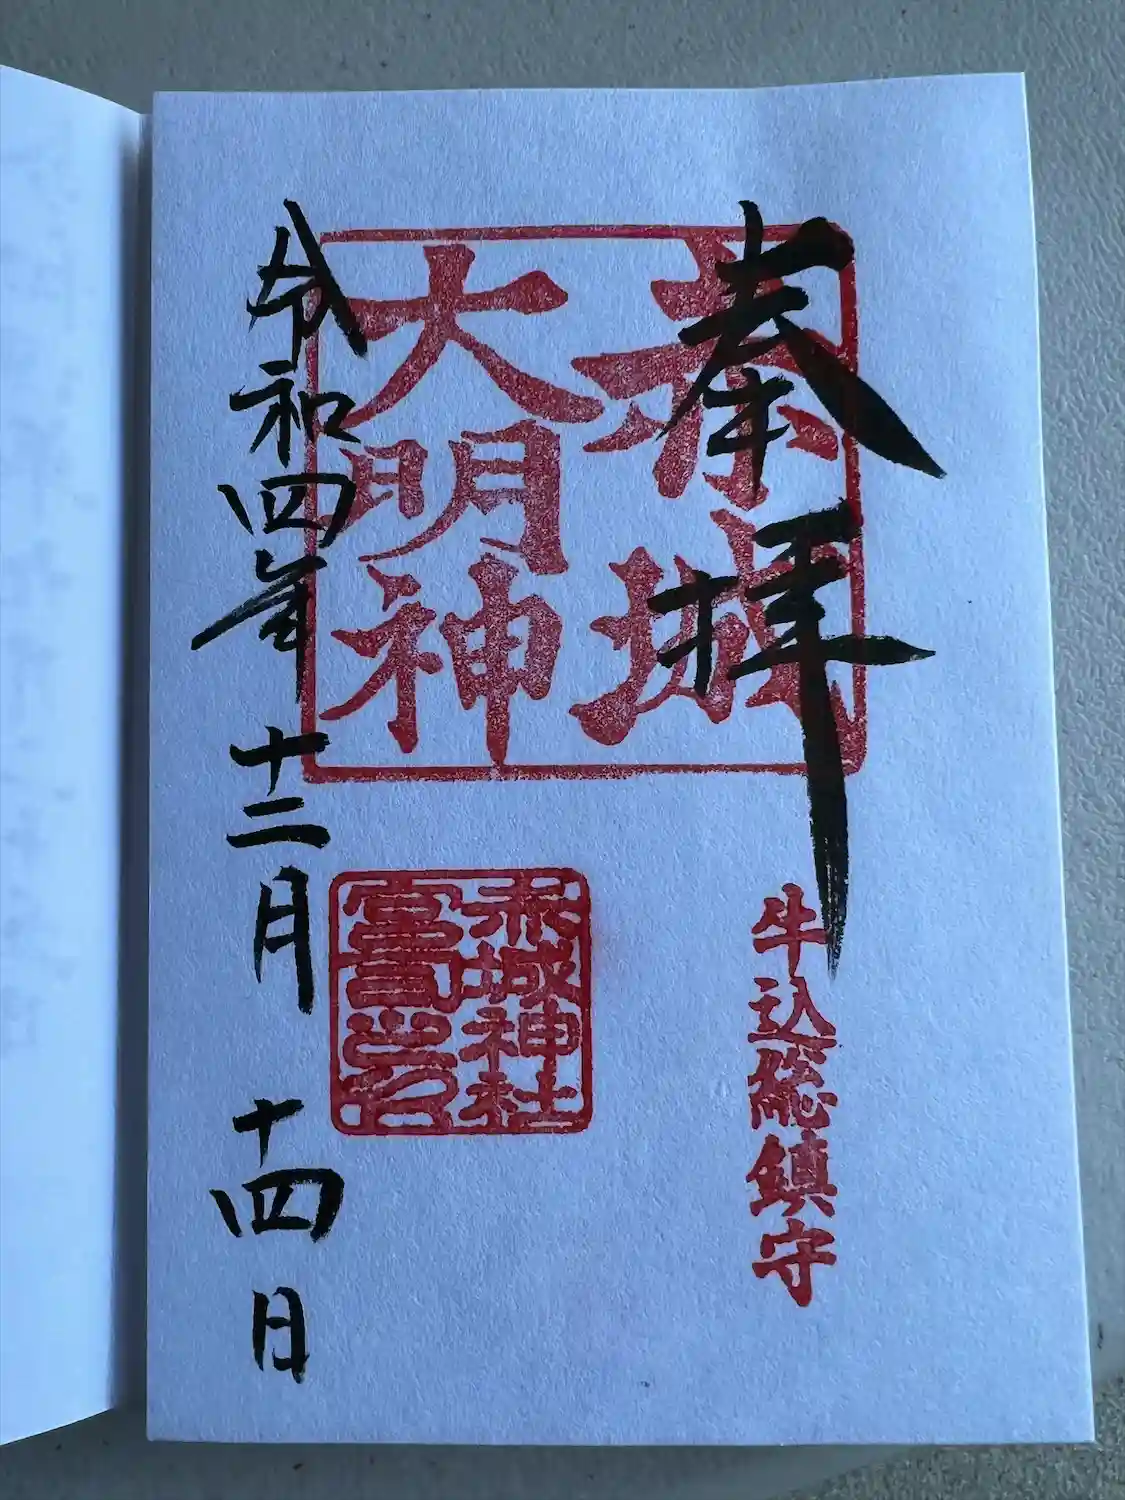 奉拝
赤城
大明神
牛込総鎮守
赤城神社
令和四年十二月十四日